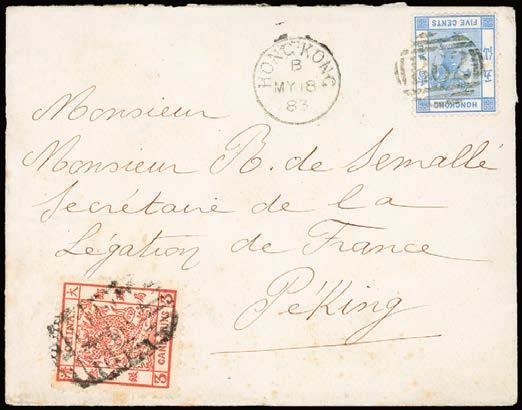 HONG KONG
B
MY 18
83
FIVE CENTS
HONGKONG
B62
Monsieur
Monsieur R. de Semallé
Secrétaire de la
Légation de France
Péking
大
CHINA
3 CANDARINS 3
銀